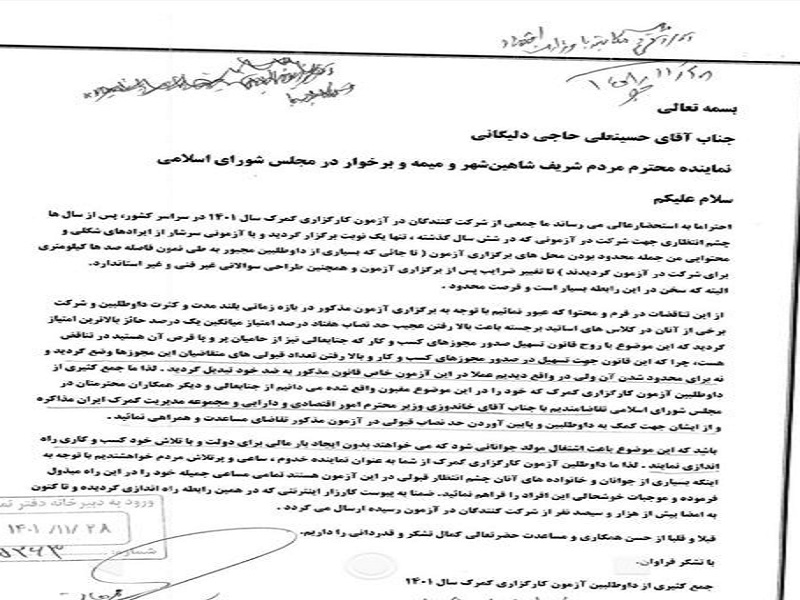 بسمه تعالی
جناب آقای حسینعلی حاجی دلیگانی
نماینده محترم مردم شریف شاهین‌شهر و میمه و برخوار در مجلس شورای اسلامی
سلام علیکم
احتراما به استحضارعالی می رساند ما جمعی از شرکت کنندگان در آزمون کارگزاری گمرک سال ۱۴۰۱ در سراسر کشور، پس از سال ها
چشم انتظاری جهت شرکت در آزمونی که در شش سال گذشته ، تنها یک نوبت برگزار گردید و با آزمونی سرشار از ایرادهای شکلی و
محتوایی من جمله محدود بودن محل های برگزاری آزمون ( تا جائی که بسیاری از داوطلبین مجبور به طی نمون فاصله صد ها کیلومتری
برای شرکت در آزمون گردیدند ) تا تغییر ضرایب پس از برگزاری آزمون و همچنین طراحی سوالاتی غیر فنی و غیر استاندارد.
البته که سخن در این رابطه بسیار است و فرصت محدود .
از این تناقضات در فرم و محتوا که عبور نمائیم با توجه به برگزاری آزمون مذکور در بازه زمانی بلند مدت و کثرت داوطلبین و شرکت
برخی از آنان در کلاس های اساتید برجسته باعث بالا رفتن عجیب حد نصاب هفتاد درصد امتیاز میانگین یک درصد حائز بالاترین امتیاز
گردید که این موضوع با روح قانون تسهیل صدور مجوزهای کسب و کار که جنابعالی نیز از حامیان پر و پا قرص آن هستید در تناقض
هست، چرا که این قانون جهت تسهیل در صدور مجوزهای کسب و کار و بالا رفتن تعداد قبولی های متقاضیان این مجوزها وضع گردید و
نه برای محدود شدن آن ولی در واقع دیدیم عملا در این آزمون خاص قانون مذکور به ضد خود تبدیل گردید . لذا ما جمع کثیری از
داوطلبین آزمون کارگزاری گمرک که خود را در این موضوع مغبون واقع شده می دانیم از جنابعالی و دیگر همکاران محترمتان در
مجلس شورای اسلامی تقاضامندیم با جناب آقای خاندوزی وزیر محترم امور اقتصادی و دارایی و مجموعه مدیریت گمرک ایران مذاکره
و از ایشان جهت کمک به داوطلبین و پایین آوردن حد نصاب قبولی در آزمون مذکور تقاضای مساعدت و همراهی نمائید .
باشد که این موضوع باعث اشتغال مولد جوانانی شود که می خواهند بدون ایجاد بار مالی برای دولت و با تلاش خود کسب و کاری راه
اندازی نمایند . لذا ما داوطلین آزمون کارگزاری گمرک از شما به عنوان نماینده خدوم ، ساعی و پرتلاش مردم خواهشتدیم با توجه به
اینکه بسیاری از جوانان و خانواده های آنان چشم انتظار قبولی در این آزمون هستند تمامی مساعی جمیله خود را در این راه مبذول
فرموده و موجبات خوشحالی این افراد را فراهم نمائید. ضمنا به پیوست کارزار اینترنتی که در همین رابطه راه اندازی گردیده و تا کنون
به امضا بیش از هزار و سیصد نفر از شرکت کنندگان در آزمون رسیده ارسال می گردد .
قبلا و قلبا از حسن همکاری و مساعدت حضرتعالی کمال تشکر و قدردانی را داریم.
با تشکر فراوان.
جمع کثیری از داوطلبین آزمون کارگزاری گمرک سال ۱۴۰۱
ورود به دبیرخانه دفتر
۱۴۰۱/۱۱/۲۸
شماره: